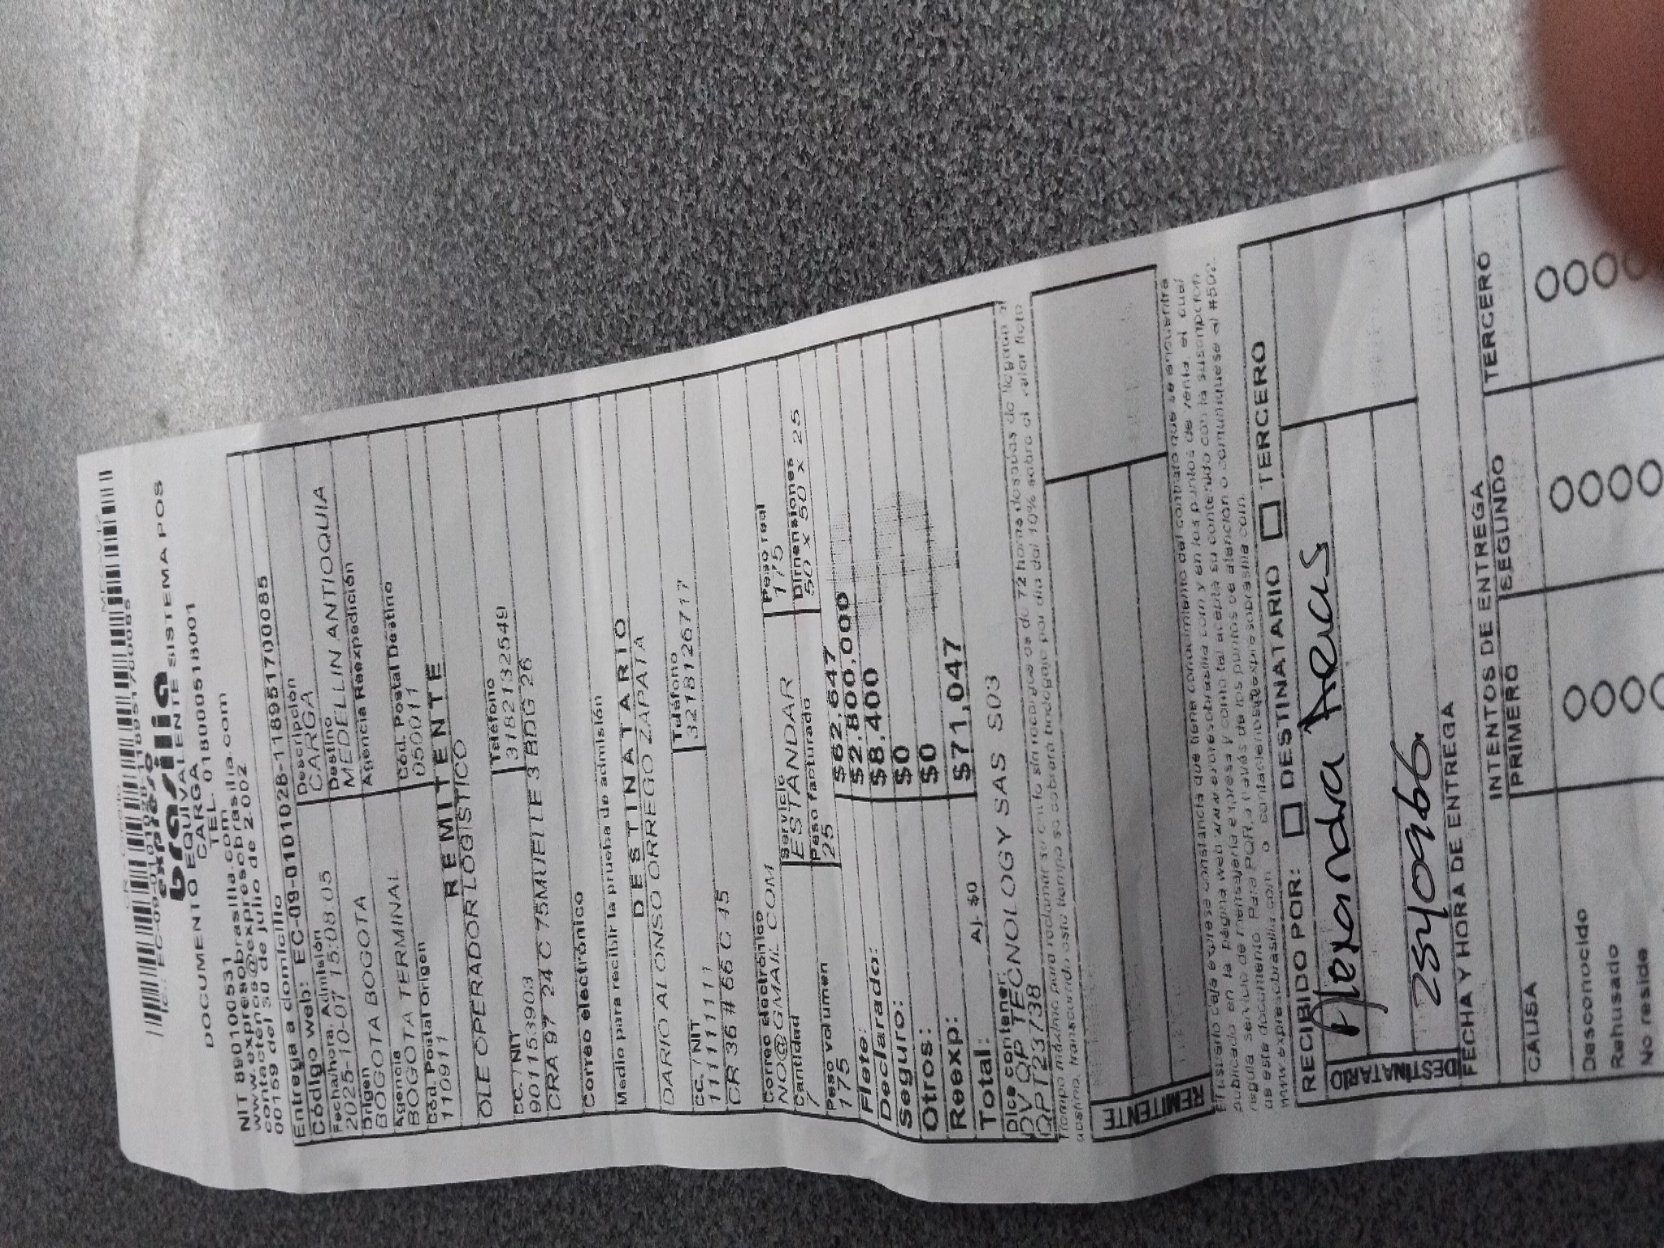 EC-09-0101028-1189517000085
expreso
brasilia
DOCUMENTO EQUIVALENTE SISTEMA POS
CARGA
TEL. 018000518001
NIT 890100531
www.expresobrasilia.com
contactenos@expresobrasilia.com
00159 del 30 de julio de 2.002
Entrega a domicilio
Código web: EC-09-0101028-1189517000085
Fecha/hora. Admisión Descripción
2025-10-07 15:08:05 CARGA
Origen Destino
BOGOTA BOGOTA MEDELLIN ANTIOQUIA
Agencia Agencia Reexpedición
BOGOTA TERMINAL
Cód. Postal Origen Cód. Postal Destino
110911 050011
REMITENTE
OLE OPERADOR LOGISTICO
CC. / NIT Teléfono
9011153903 3182132549
CRA 97 24 C 75MUELLE 3 BDG 26
Correo electrónico
Medio para recibir la prueba de admisión
DESTINATARIO
DARIO ALONSO ORREGO ZAPATA
CC. / NIT Teléfono
1111111111 3218126717
CR 36 # 66 C 15
Correo electrónico
NO@GMAIL.COM
Cantidad Servicio Peso real
7 ESTANDAR 175
Peso volumen Peso facturado Dimensiones
175 25 50 x 50 x 25
Flete: $62,647
Declarado: $2,800,000
Seguro: $8,400
Otros: $0
Reexp: Aj. $0 $0
Total: $71,047
Dice contener:
DV OP TECNOLOGY SAS S03
OPT23738
Tiempo máximo para reclamar su envío sin recargos es de 72 horas después de llegada al
destino, transcurrido este tiempo se cobrará bodegaje por día del 10% sobre el valor flete
REMITENTE
El usuario deja expresa constancia que tiene conocimiento del contrato que se encuentra
publicado en la página web www.expresobrasilia.com y en los puntos de venta el cual
regula servicio de mensajería expresa y como tal acepta su contenido con la suscripción
de este documento. Para PQR a través de los puntos de atención o comuníquese al #502.
RECIBIDO POR: DESTINATARIO TERCERO
Alexandra Arcas
2540966
DESTINATARIO
FECHA Y HORA DE ENTREGA
INTENTOS DE ENTREGA
CAUSA PRIMERO SEGUNDO TERCERO
Desconocido
Rehusado
No reside